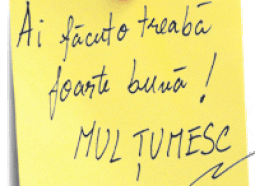 Ai făcut o treabă
foarte bună!
MULȚUMESC